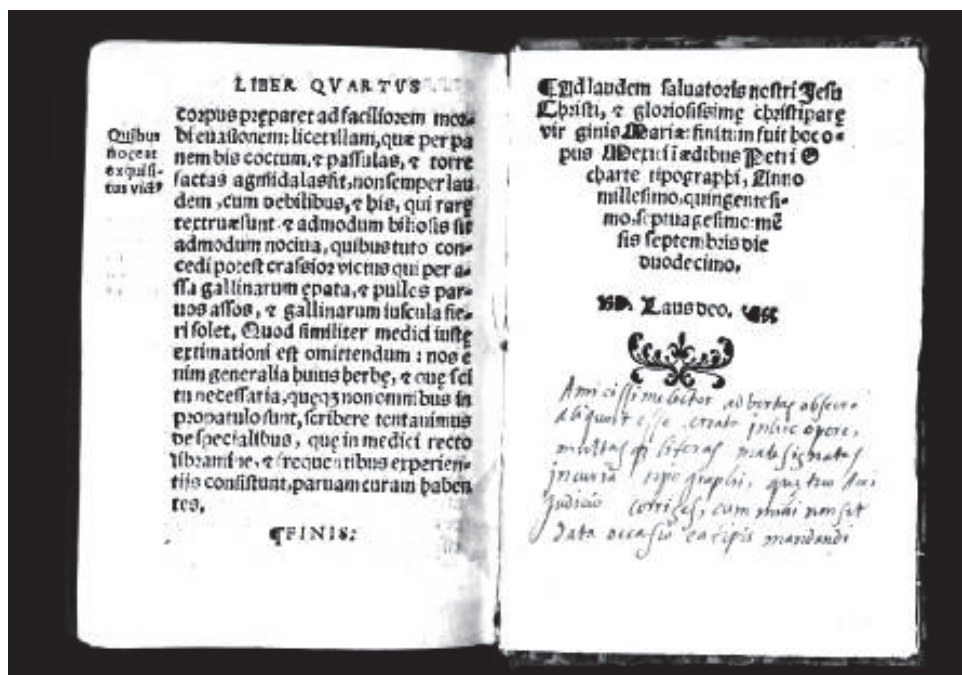 LIBER QVARTVS
Quibus
noceat
exquisi-
tus vict9
corpus pręparet ad faciliorem mor-
bi euasionem: licet illam, quæ per pa
nem bis coctum, ⁊ passulas, ⁊ torre
factas agmidalas fit, non semper lau
dem, cum debilibus, ⁊ his, qui rarę
tectruæ sunt. ⁊ admodum biliosis sit
admodum nociua, quibus tuto con-
cedi potest crassior victus qui per a-
ssa gallinarum epata, ⁊ pulles par-
uos assos, ⁊ gallinarum iuscula fie-
ri solet. Quod similiter medici iustę
extimationi est omittendum: nos e
nim generalia huius herbę, ⁊ quę sci
tu necessaria, queqꝫ non omnibus in
propatulo sunt, scribere tentauimus
de specialibus, quę in medici recto
libramine, ⁊ frequentibus experien-
tijs consistunt, paruam curam haben
tes.
¶FINIS:
¶Ad laudem saluatoris nostri Jesu
Christi, ⁊ gloriosissimę christiparę
vir ginis Mariæ: finitum fuit hoc o-
pus Mexici ī ædibus Petri O
charte tipographi, Anno
millesimo, quingentesi-
mo, septuagesimo: mē
sis septembris die
duodecimo.
Laus deo.
Amicissime lector advertas obsecro
aliquot esse errata in hoc opere,
multas literas male signatas
incuria tipographi, quę tuo
judicio corriges, cum mihi non sit
data occasio mandandi